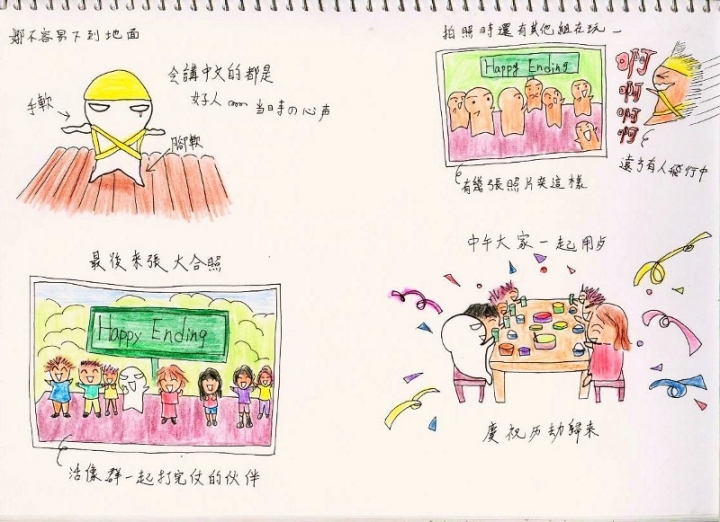 那不容易下到地面
會講中文的都是
好人
當日時の心声
手軟
腳軟
拍照時還有其他組在玩
Happy Ending
啊
啊
啊
啊
遠方有人飛行中
有幾張照片夾這樣
最後來張大合照
Happy Ending
活像群一起打完仗的伙伴
中午大家一起用歺
慶祝历劫歸來